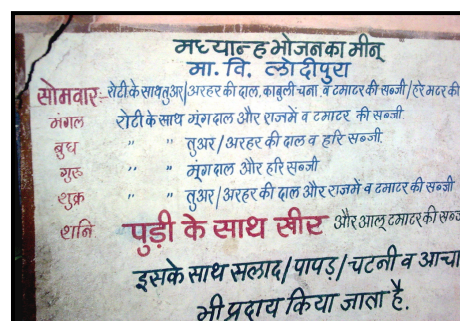 मध्यान्ह भोजन का मीनू
मा. वि. लोदीपुरा
सोमवार:- रोटी के साथ तुअर/अरहर की दाल, काबुली चना, व टमाटर की सब्जी/हरे मटर की
मंगल रोटी के साथ मूंग दाल और राजमें व टमाटर की सब्जी
बुध " " तुअर/अरहर की दाल व हरि सब्जी
गुरु " " मूंग दाल और हरि सब्जी
शुक्र " " तुअर/अरहर की दाल और राजमें व टमाटर की सब्जी
शनि पुड़ी के साथ खीर और आलू टमाटर की
इसके साथ सलाद/पापड़/चटनी व आचा
भी प्रदाय किया जाता है.